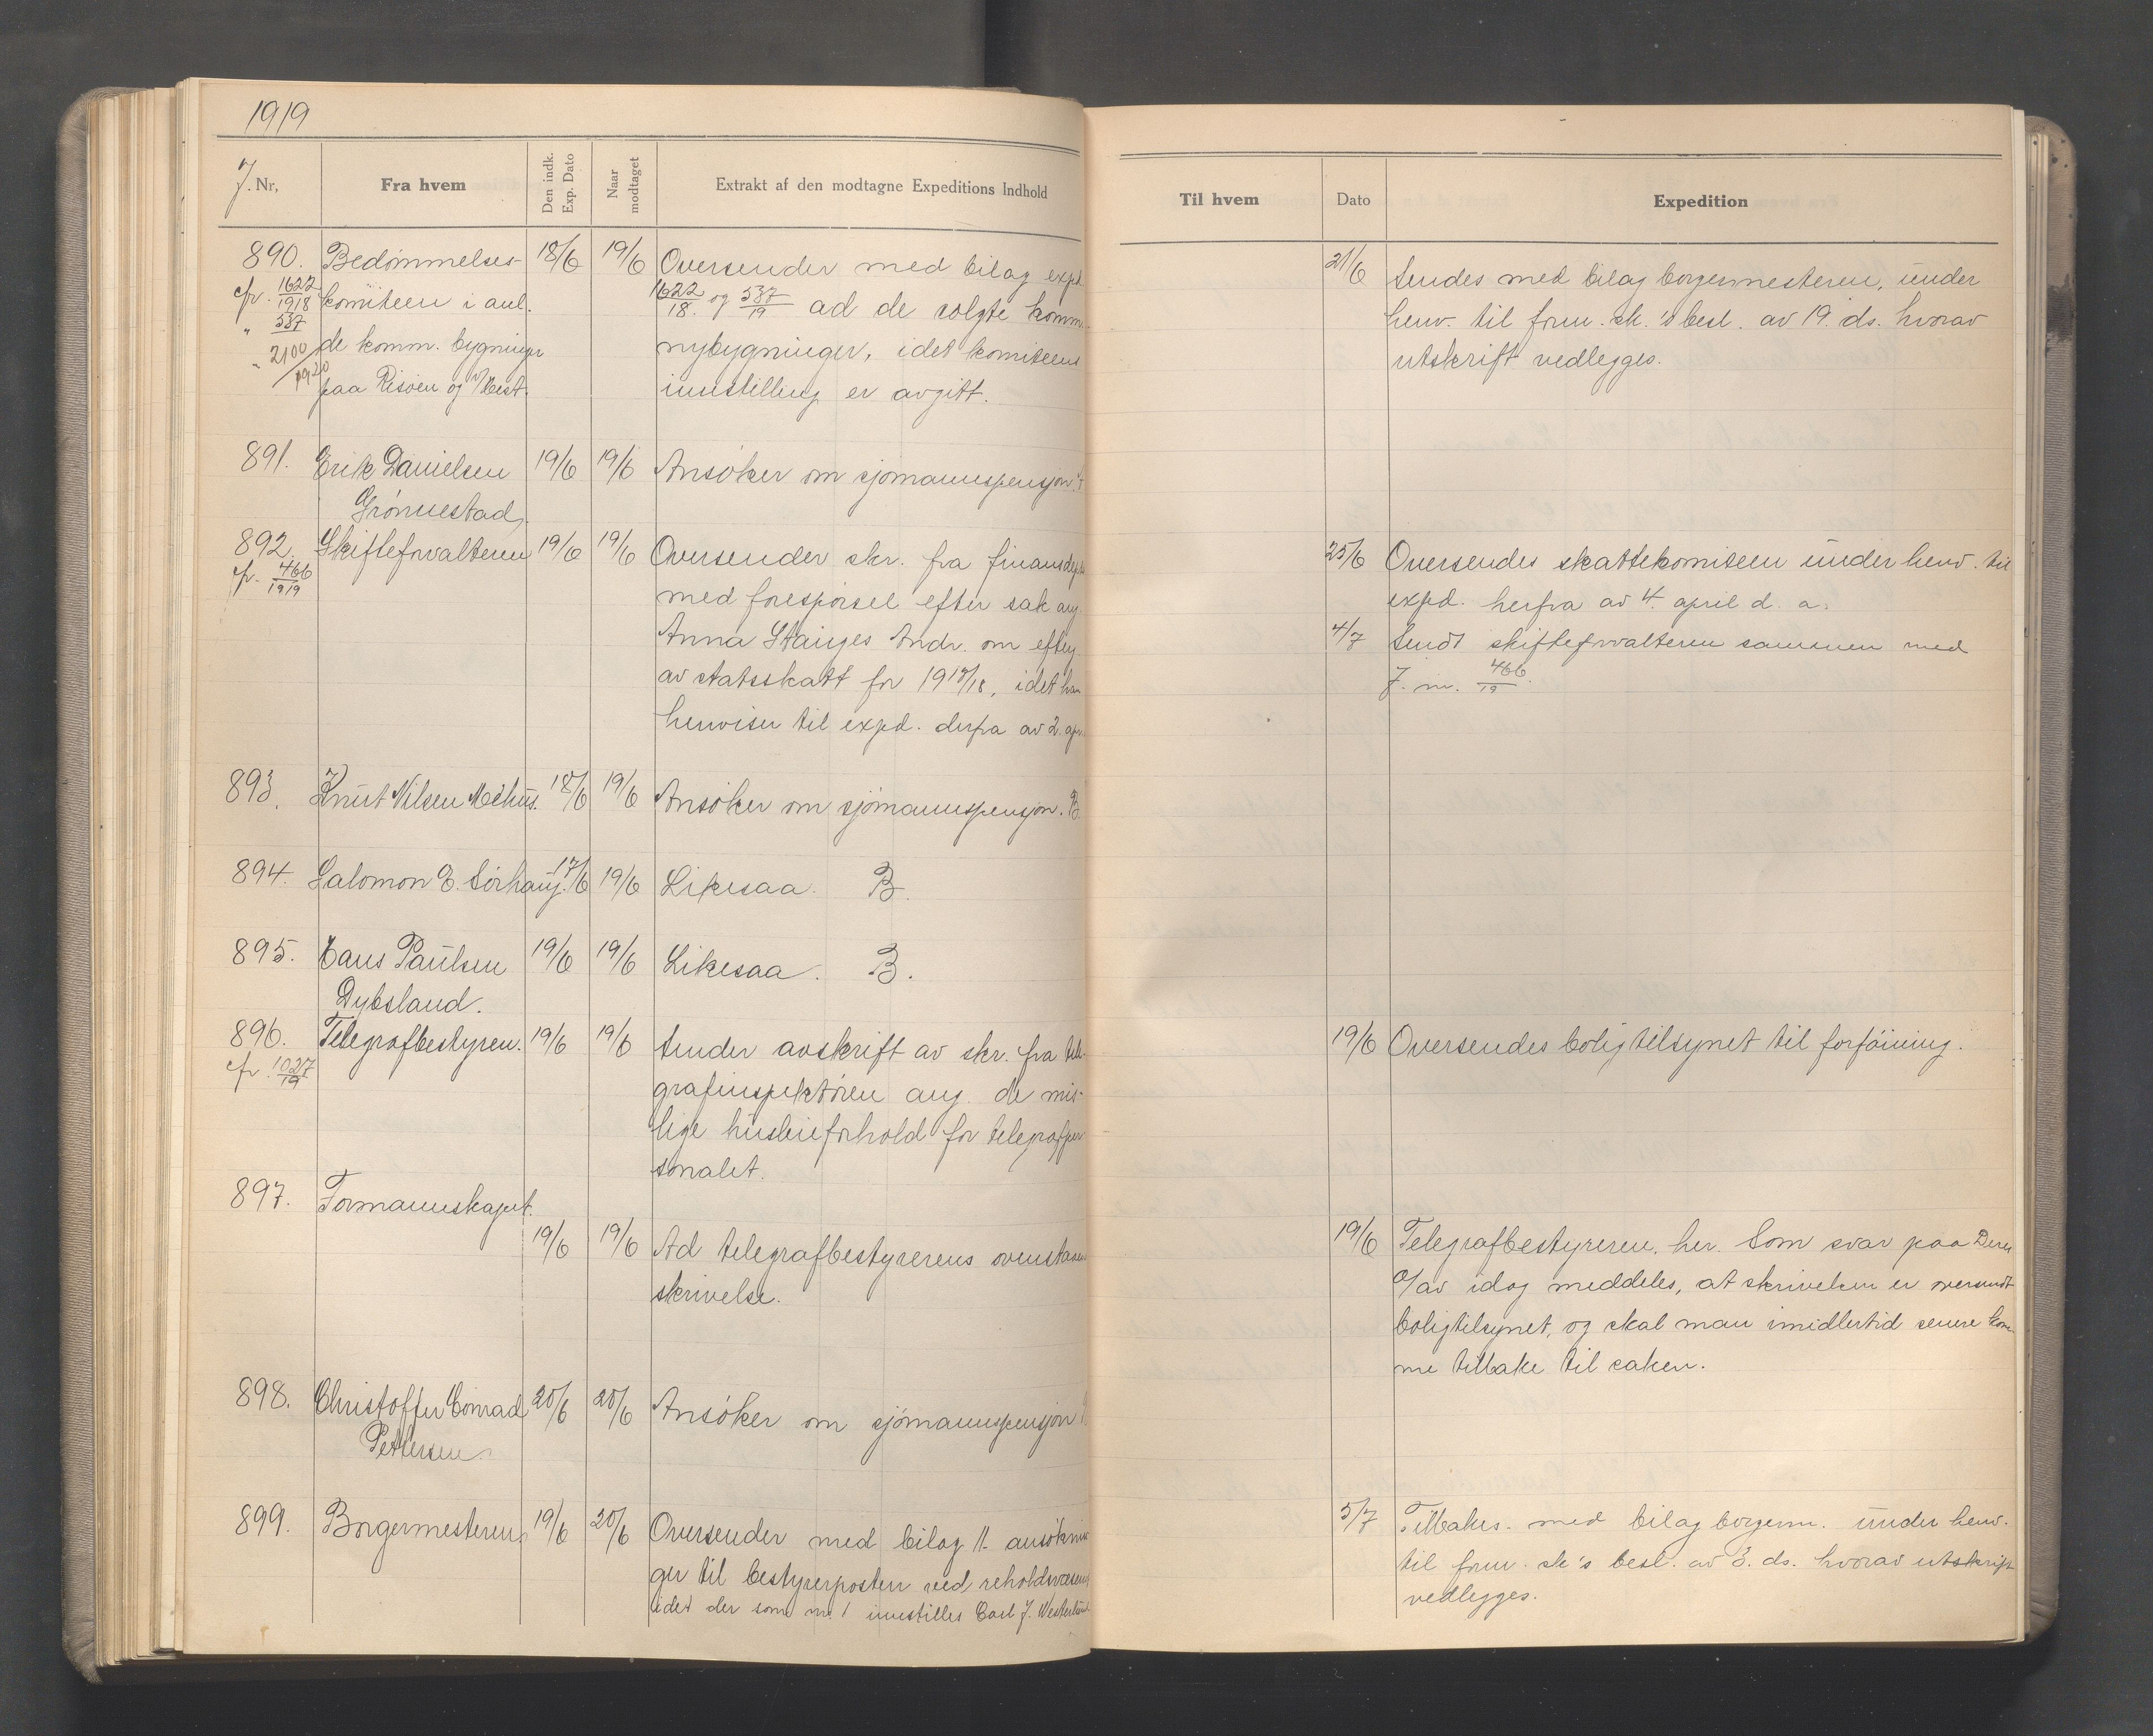 1919
J. Nr,
Fra hvem
Den indk.
Exp. Dato
Naar
modtaget
Extrakt af den modtagne Expeditions Indhold
890. Bedømmelses- 18/6 19/6 Oversender med bilag expd.
cfr. 1622/1918 komiteen i anl. 1622/18. og 537/19 ad de solgte komm.
" 537 de komm. bygninger nybygninger, idet komiteens
" 2100/1920 paa Risøen og v/ Hest. innstilling er avgitt.
891. Erik Danielsen 19/6 19/6 Ansøker om sjømannspensjon.
Grønnestad.
892. Skifteforvalteren 19/6 19/6 Oversender skr. fra finansdept.
cfr. 466/1919 med forespørsel efter sak ang.
Anna Stanges Andr. om efterg.
av statsskatt for 1917/18, idet han
henviser til expd. derfra av 2. apr.
893. Knut Nilsen Mehus. 18/6 19/6 Ansøker om sjømannspensjon. B.
894. Salomon E. Sørhaug. 17/6 19/6 Likesaa. B.
895. Hans Paulsen 19/6 19/6 Likesaa. B.
Dybsland.
896. Telegrafbestyren. 19/6 19/6 Sender avskrift av skr. fra tele-
cfr. 1027/19 grafinspektøren ang. de mis-
lige husleieforhold for telegrafper
sonalet.
897. Formannskapet.
19/6 19/6 Ad telegrafbestyrerens ovenstaaen
skrivelse.
898. Christoffer Conrad 20/6 20/6 Ansøker om sjømannspensjon
Pettersen.
899. Borgermesteren, 19/6 20/6 Oversender med bilag 11 ansøknin
ger til bestyrerposten ved reholdsvæsenet
idet der som nr. 1 innstilles Carl J. Westerlund
Til hvem
Dato
Expedition
21/6 Sendes med bilag borgermesteren, under
henv. til form. sk.'s besl. av 19. ds. hvorav
utskrift vedlegges.
25/6 Oversendes skattekomiteen under henv. til
expd. herfra av 4. april d. a.
4/7 Sendt skifteforvalteren sammen med
J. nr. 466/19.
19/6 Oversendes boligtilsynet til forføining.
19/6 Telegrafbestyreren, her. Som svar paa Deres
% av idag meddeles, at skrivelsen er oversendt
boligtilsynet, og skal man imidlertid senere kom-
me tilbake til saken.
5/7 Tilbakes. med bilag borgerm. under henv.
til form. sk's besl. av 3. ds. hvorav utskrift
vedlegges.